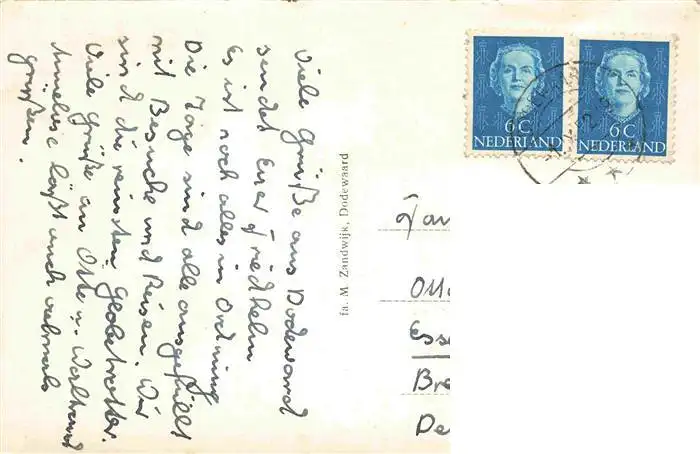 Viele Grüße aus Dodewaard
sendet Euer Friedhelm
Es ist noch alles in Ordnung
Die Tage sind alle ausgefüllt
mit Besuche und Reisen. Wir
sind die reinsten Globetrotter.
Viele Grüße an Otto u. Waltraud
Anneliese läßt auch vielmals
grüßen.
fa. M. Zandwijk, Dodewaard
6 C
NEDERLAND
6 C
NEDERLAND
Fa
Otto
Esse
Bre
De